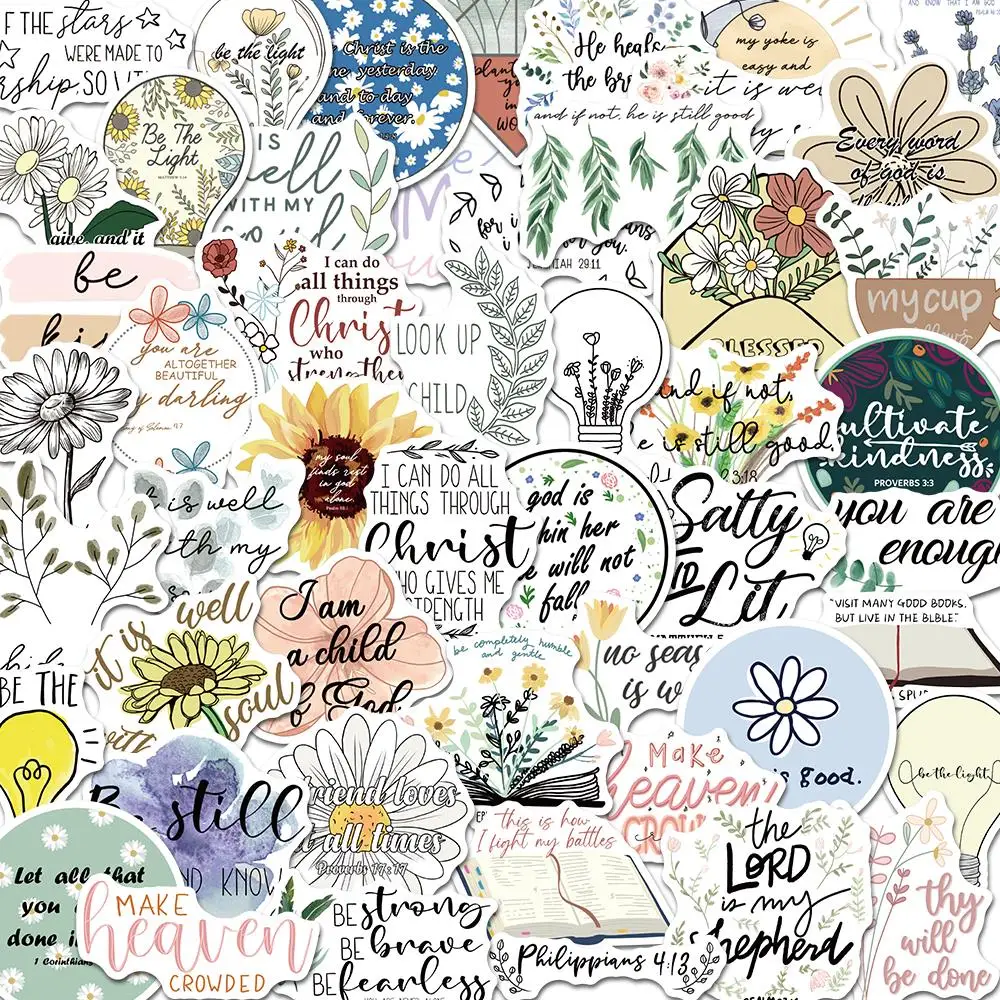 F THE stars
WERE MADE TO
rship, SO W
be the light
Christ is the
ne, yesterday
and to day
and forever.
plant
in
He heals
the br
my yoke is
easy and
AND KNOW THAT I AM GOD
Be The
Light
MATTHEW 5:14
IS
well
WITH MY
soul
and if not, he is still good
it is wel
Every word
of god is
give, and it
for i
JEREMIAH 29:11
be
I can do
all things
through
Christ
who
strengthen
LOOK UP
CHILD
BLESSED
my cup
you are
ALTOGETHER
BEAUTIFUL
my darling
Song of Solomon 4:7
my soul
finds rest
in god
alone
Psalm 62:1
and if not,
he is still good.
3:18
cultivate
kindness
PROVERBS 3:3
is well
ith my
I CAN DO ALL
THINGS THROUGH
Christ
WHO GIVES ME
STRENGTH
god is
hin her
e will not
fall
Salty
Lit
you are
enough
"VISIT MANY GOOD BOOKS,
BUT LIVE IN THE BIBLE."
SPUR
BE THE
it is well
with
soul
I am
a child
of God
be completely humble
and gentle
no seas
is w
is good.
be the light
Be still
ND KNOW
friend loves
at all times
Proverbs 17:17
Make
heaven
CROW
This is how
I fight my battles
Philippians 4:13
the
LORD
is my
shepherd
Let all that
you
done in
1 Corinthians
MAKE
heaven
CROWDED
BE strong
BE brave
BE fearless
YOU ARE NEVER ALONE
thy
will
be done